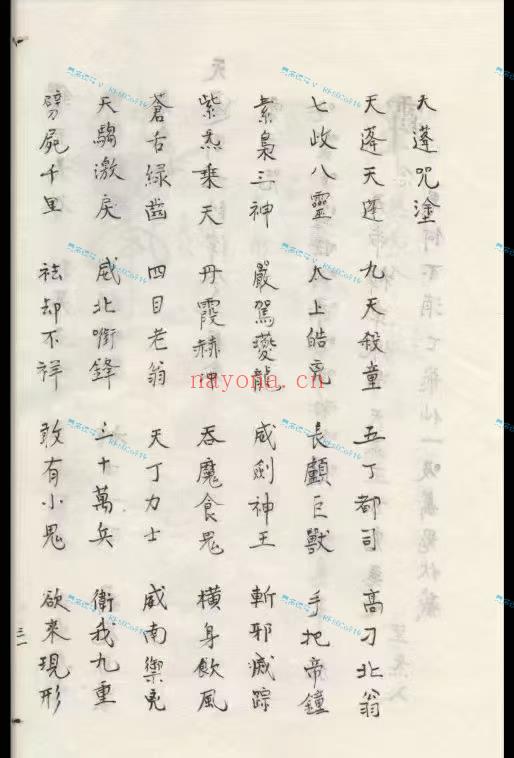 天蓬咒塗
天蓬天蓬 九天殺童 五丁都司 高刁北翁
七政八靈 太上皓兇 長顱巨獸 手把帝鐘
素梟三神 嚴駕夔龍 威劍神王 斬邪滅踪
紫炁乘天 丹霞赫冲 吞魔食鬼 橫身飲風
蒼舌綠齒 四目老翁 天丁力士 威南禦兇
天騶激戾 威北啣鋒 三十萬兵 衛我九重
劈屍千里 祛却不祥 敢有小鬼 欲來現形
三一
nayona.cn